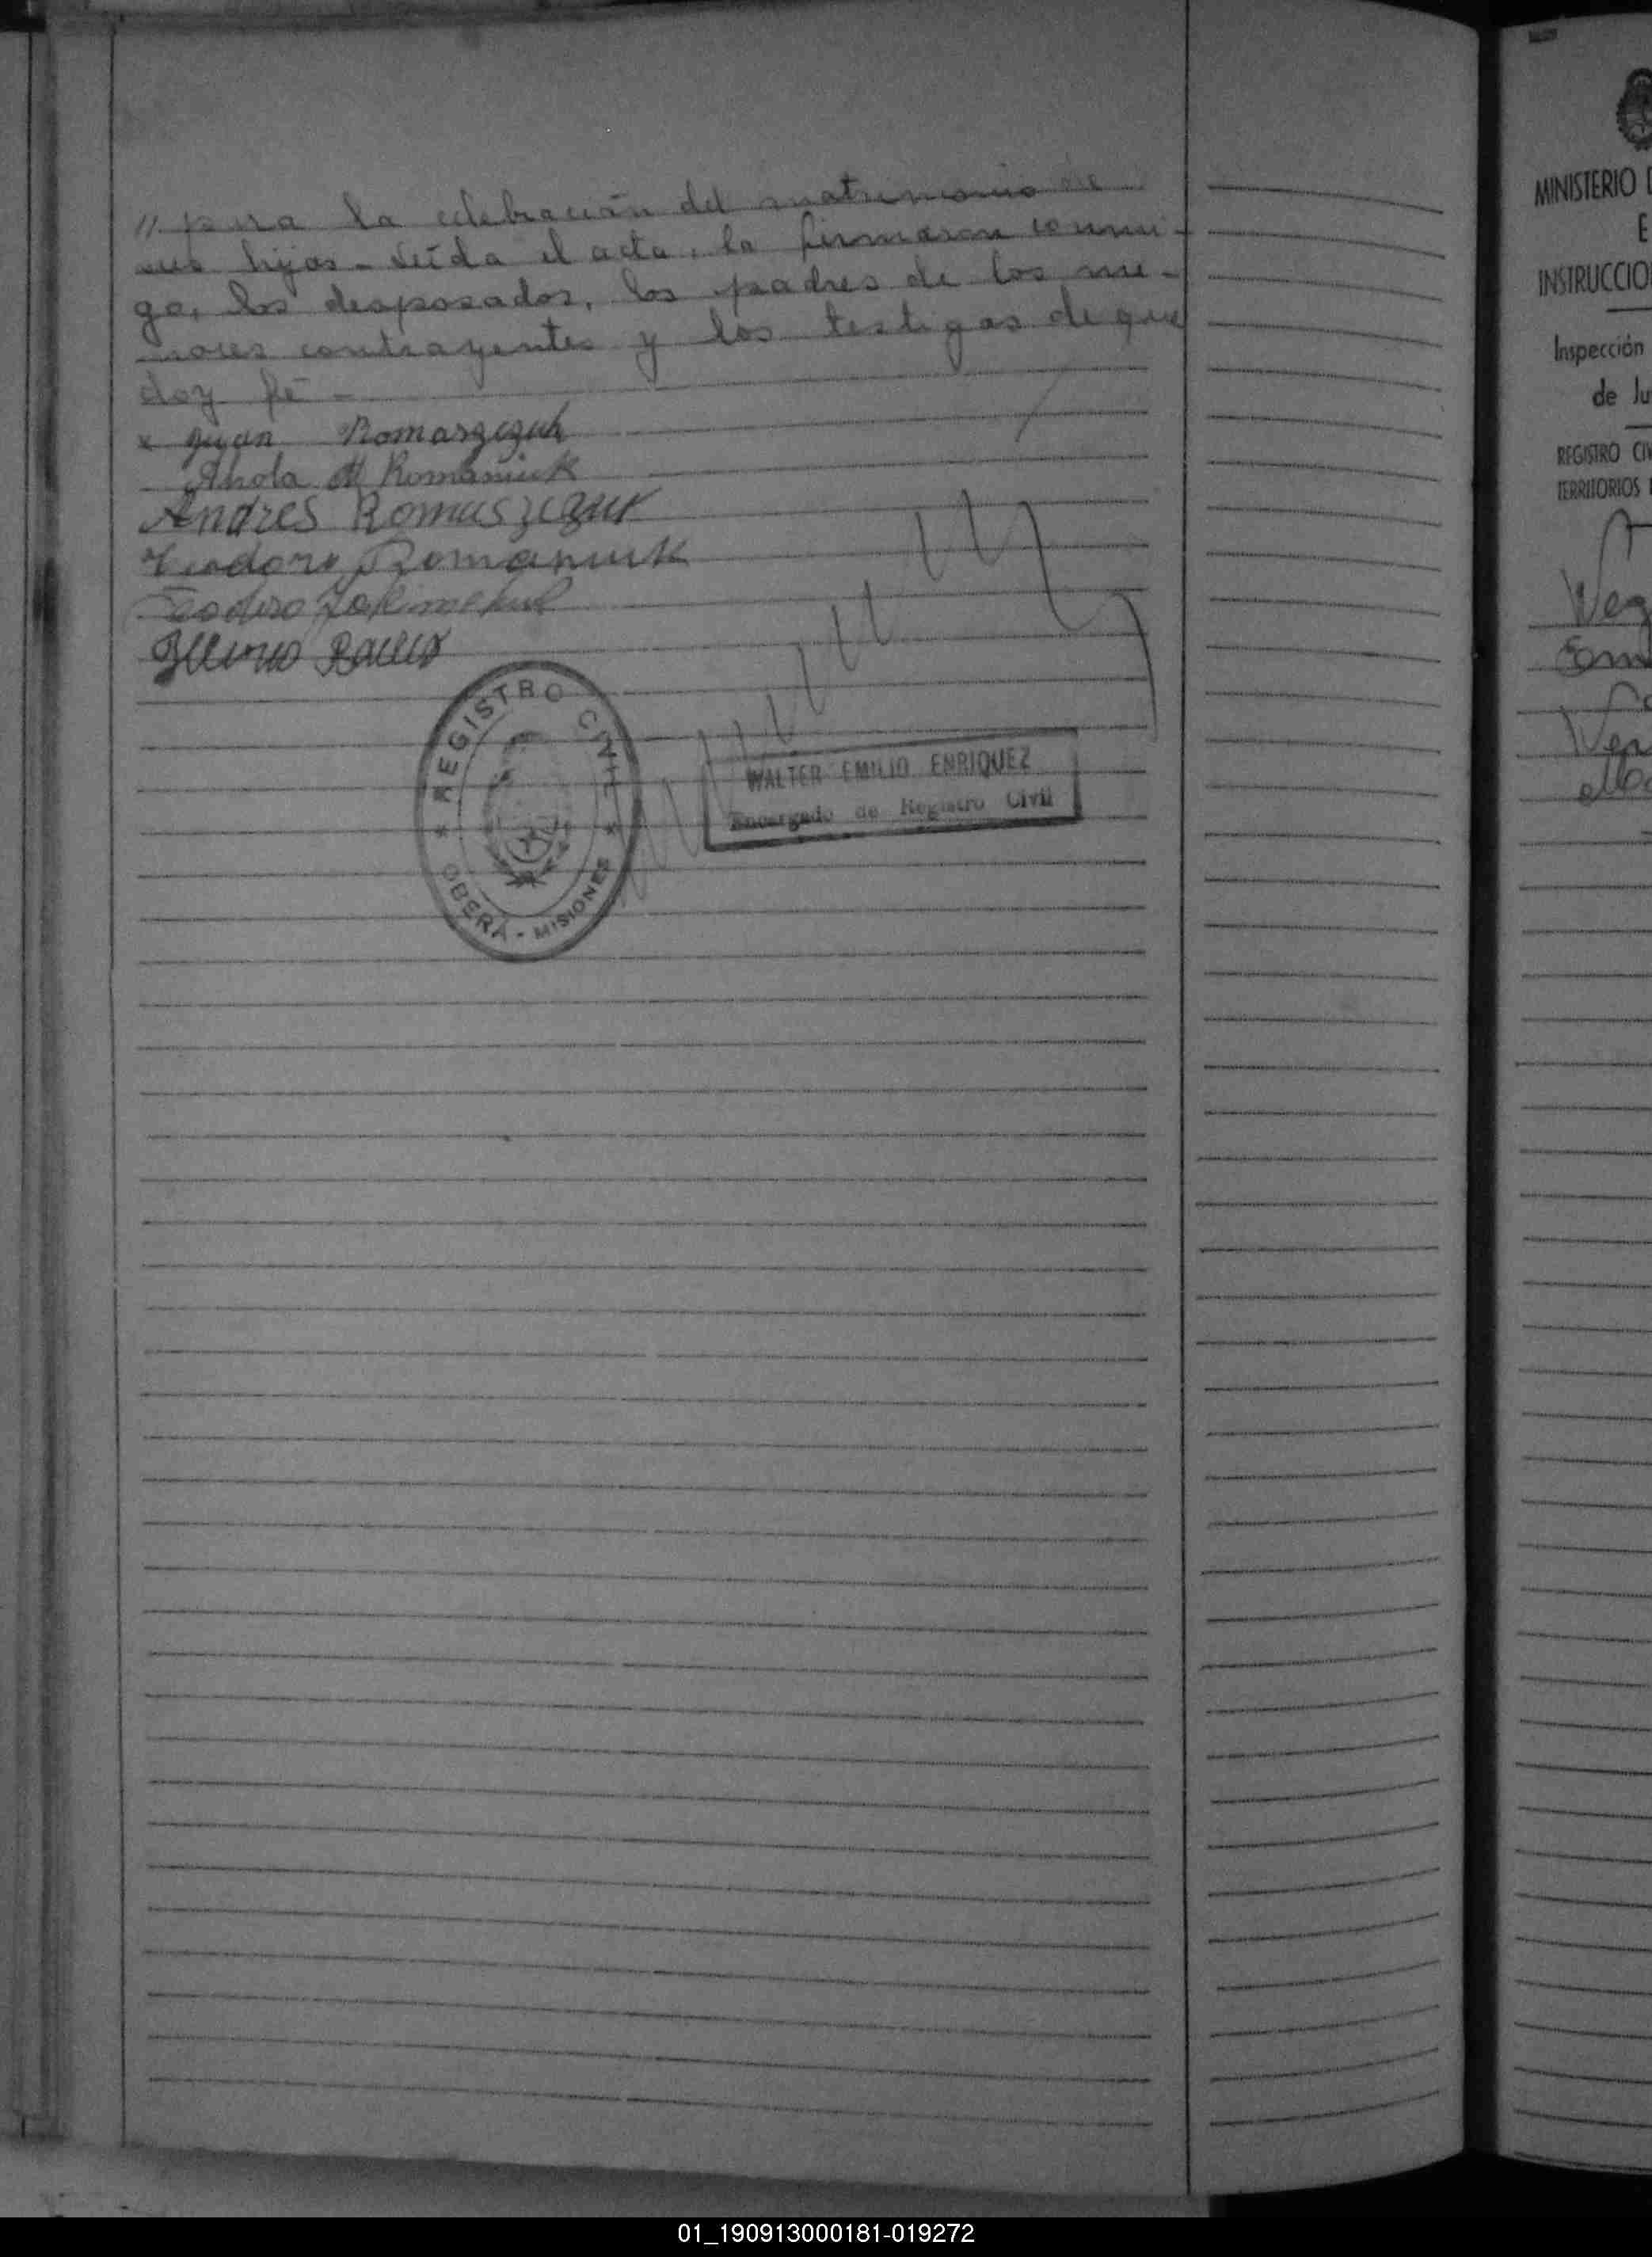 // para la celebración del matrimonio de
sus hijos - Leída el acta, la firmaron conmi-
go, los desposados, los padres de los me-
nores contrayentes y los testigos de que
doy fé -
x Juan Romaszczuk
Romaniuk
Andres Romaszczuk
Teodoro Romaniuk
Teodoro
REGISTRO CIVIL
* OBERÁ - MISIONES *
WALTER EMILIO ENRIQUEZ
Encargado de Registro Civil
MINISTERIO D
E
INSTRUCCIO
Inspección
de Ju
REGISTRO CIV
TERRITORIOS
01_190913000181-019272